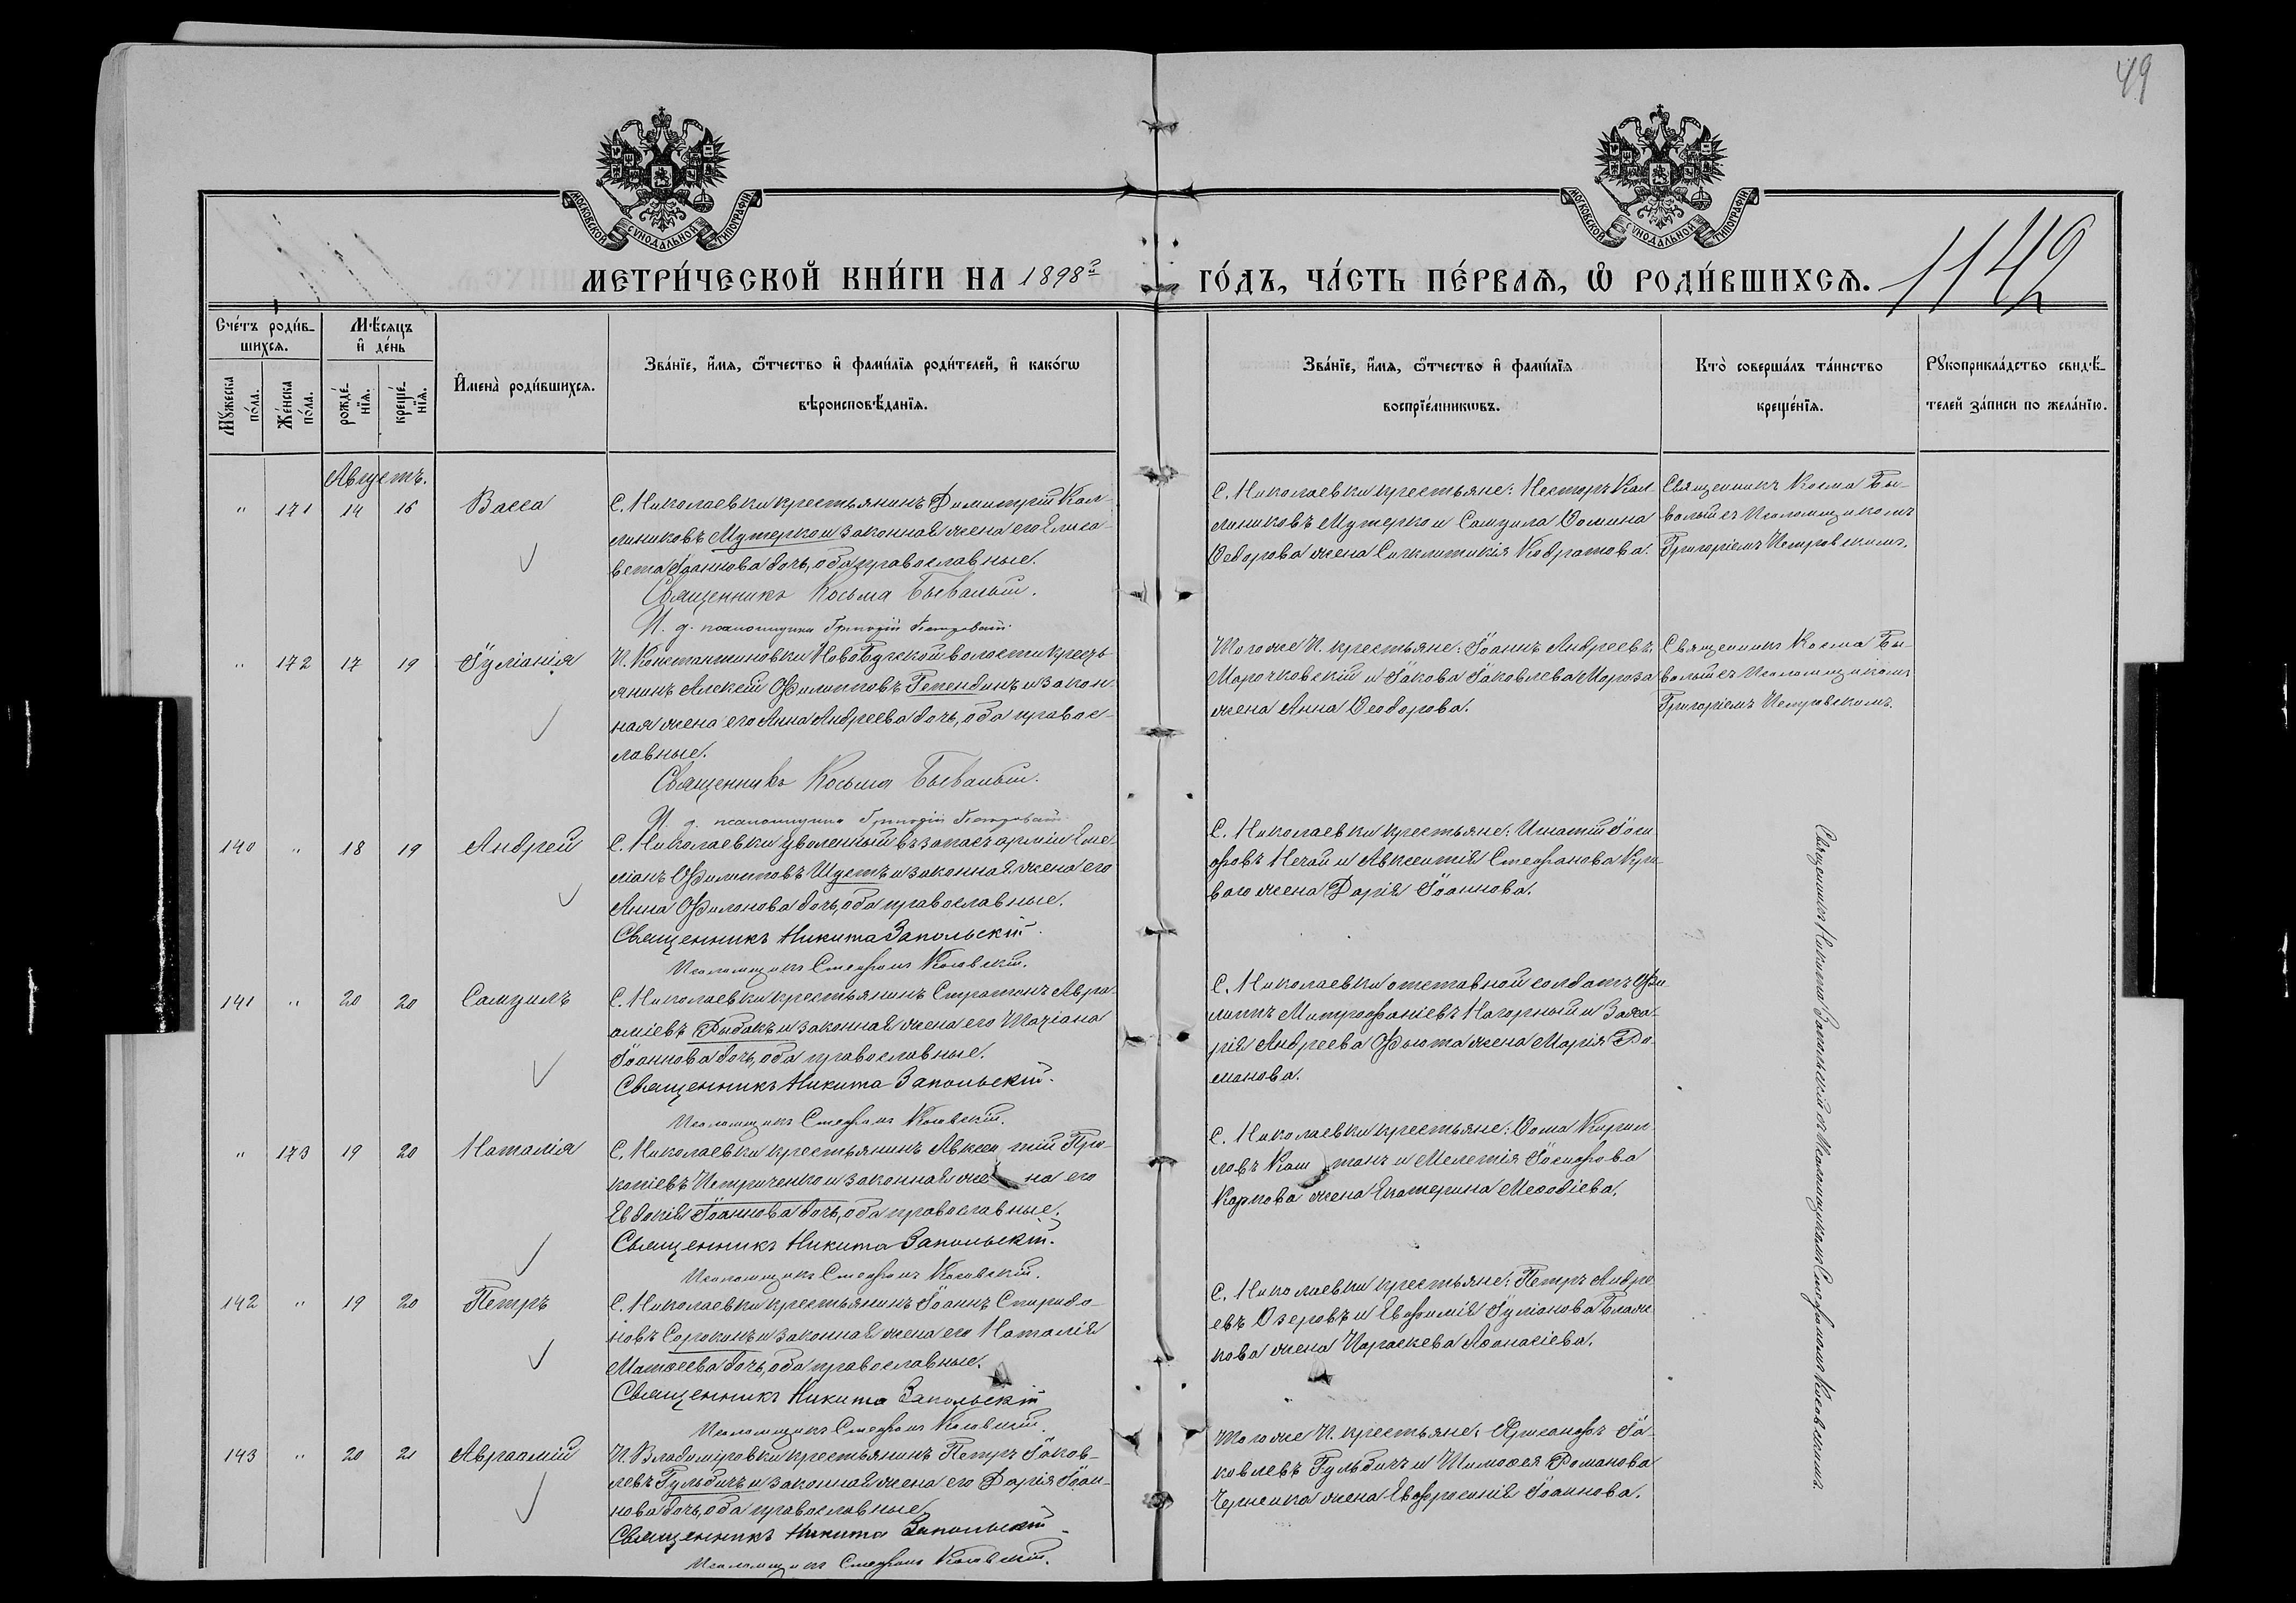 49
МОСКОВСКОЙ СѴНОДАЛЬНОЙ ТИПОГРАФІИ
МОСКОВСКОЙ СѴНОДАЛЬНОЙ ТИПОГРАФІИ
МЕТРИ́ЧЕСКОЙ КНИ́ГИ НА 1898й ГО́ДЪ, ЧА́СТЬ ПЕ́РВАѦ, Ѡ҆ РОДИ́ВШИХСѦ.
1142
Сче́тъ роди́в-
шихсѧ.
Мꙋ́жеска по́ла.
Же́нска по́ла.
Мѣ́сѧцъ и҆ де́нь
рожде́нїѧ.
креще́нїѧ.
И҆мена̀ роди́вшихсѧ.
Зва́нїе, и҆́мѧ, ѻ҆́тчество и҆ фами́лїѧ роди́телей, и҆ како́гѡ
вѣроисповѣ́данїѧ.
Зва́нїе, и҆́мѧ, ѻ҆́тчество и҆ фами́лїѧ
воспрїе́мникѡвъ.
Кто̀ соверша́лъ та́инство
креще́нїѧ.
Рꙋкоприкла́дство свидѣ́-
телей за́писи по жела́нїю.
Августъ.
" 171 14 16 Васса
С. Николаевки крестьянинъ Димитрій Кал-
линиковъ Мутерко и законная жена его Елиса-
вета Іоаннова дочь, оба православные.
Священникъ Косьма Бывалый.
И. д. псаломщика Григорій Петровскій.
С. Николаевки крестьяне: Несторъ Кал-
линиковъ Мутерко и Самуила Ѳомина
Ѳедорова жена Сигклитикія Кодратова.
Священникъ Косма Бы-
валый съ Псаломщикомъ
Григоріемъ Петровскимъ.
" 172 17 19 Іуліанія
П. Константиновки Новобугской волости кресть-
янинъ Алексій Филипповъ Гепендинъ и закон-
ная жена его Анна Андреева дочь, оба правос-
лавные.
Священникъ Косьма Бывалый.
И. д. псаломщика Григорій Петровскій
Того же П. крестьяне: Іоаннъ Андреевъ
Марочковскій и Іакова Іаковлева Мороза
жена Анна Ѳеодорова.
Священникъ Косма Бы-
валый съ Псаломщикомъ
Григоріемъ Петровскимъ.
140 " 18 19 Андрей
С. Николаевки уволенный въ запасъ арміи Еме-
ліанъ Филипповъ Шустъ и законная жена его
Анна Филонова дочь, оба православные.
Священникъ Никита Запольскій.
Псаломщикъ Стефанъ Косовскій.
С. Николаевки крестьяне: Игнатій Іоси-
фовъ Нечай и Авксентія Стефанова Кри-
ваго жена Дарія Іоаннова.
Священникъ Никита Запольскій съ Псаломщикомъ Стефаномъ Косовскимъ.
141 " 20 20 Самуилъ
С. Николаевки крестьянинъ Стратонъ Авра-
аміевъ Рыбакъ и законная жена его Татіана
Іоаннова дочь, оба православные.
Священникъ Никита Запольскій.
Псаломщикъ Стефанъ Косовскій.
С. Николаевки отставной солдатъ Фи-
липпъ Митрофаніевъ Нагорный и Заха-
рія Андреева Фьюта жена Марія Ро-
манова.
" 173 19 20 Наталія
С. Николаевки крестьянинъ Авксентій Про-
копіевъ Петриченко и законная жена его
Евдокія Іоаннова дочь, оба православные.
Священникъ Никита Запольскій.
Псаломщикъ Стефанъ Косовскій.
С. Николаевки крестьяне: Ѳома Кирил-
ловъ Каштанъ и Мелетія Іосифова
Карпова жена Екатерина Меѳодіева.
142 " 19 20 Петръ
С. Николаевки крестьянинъ Іоаннъ Спиридо-
новъ Сорокинъ и законная жена его Наталія
Матѳеева дочь, оба православные.
Священникъ Никита Запольскій
Псаломщикъ Стефанъ Косовскій.
С. Николаевки крестьяне: Петръ Андре-
евъ Озеровъ и Евфимія Іуліанова Блаж-
кова жена Параскева Аѳанасіева.
143 " 20 21 Авраамій
П. Владиміровки крестьянинъ Петръ Іаков-
левъ Гульбичъ и законная жена его Дарія Іоан-
нова дочь, оба православные
Священникъ Никита Запольскій
Псаломщикъ Стефанъ Косовскій.
Того же П. крестьяне: Хрисанфъ Іа-
ковлевъ Гульбичъ и Тимоѳея Романова
Черненка жена Евфросинія Іоаннова.